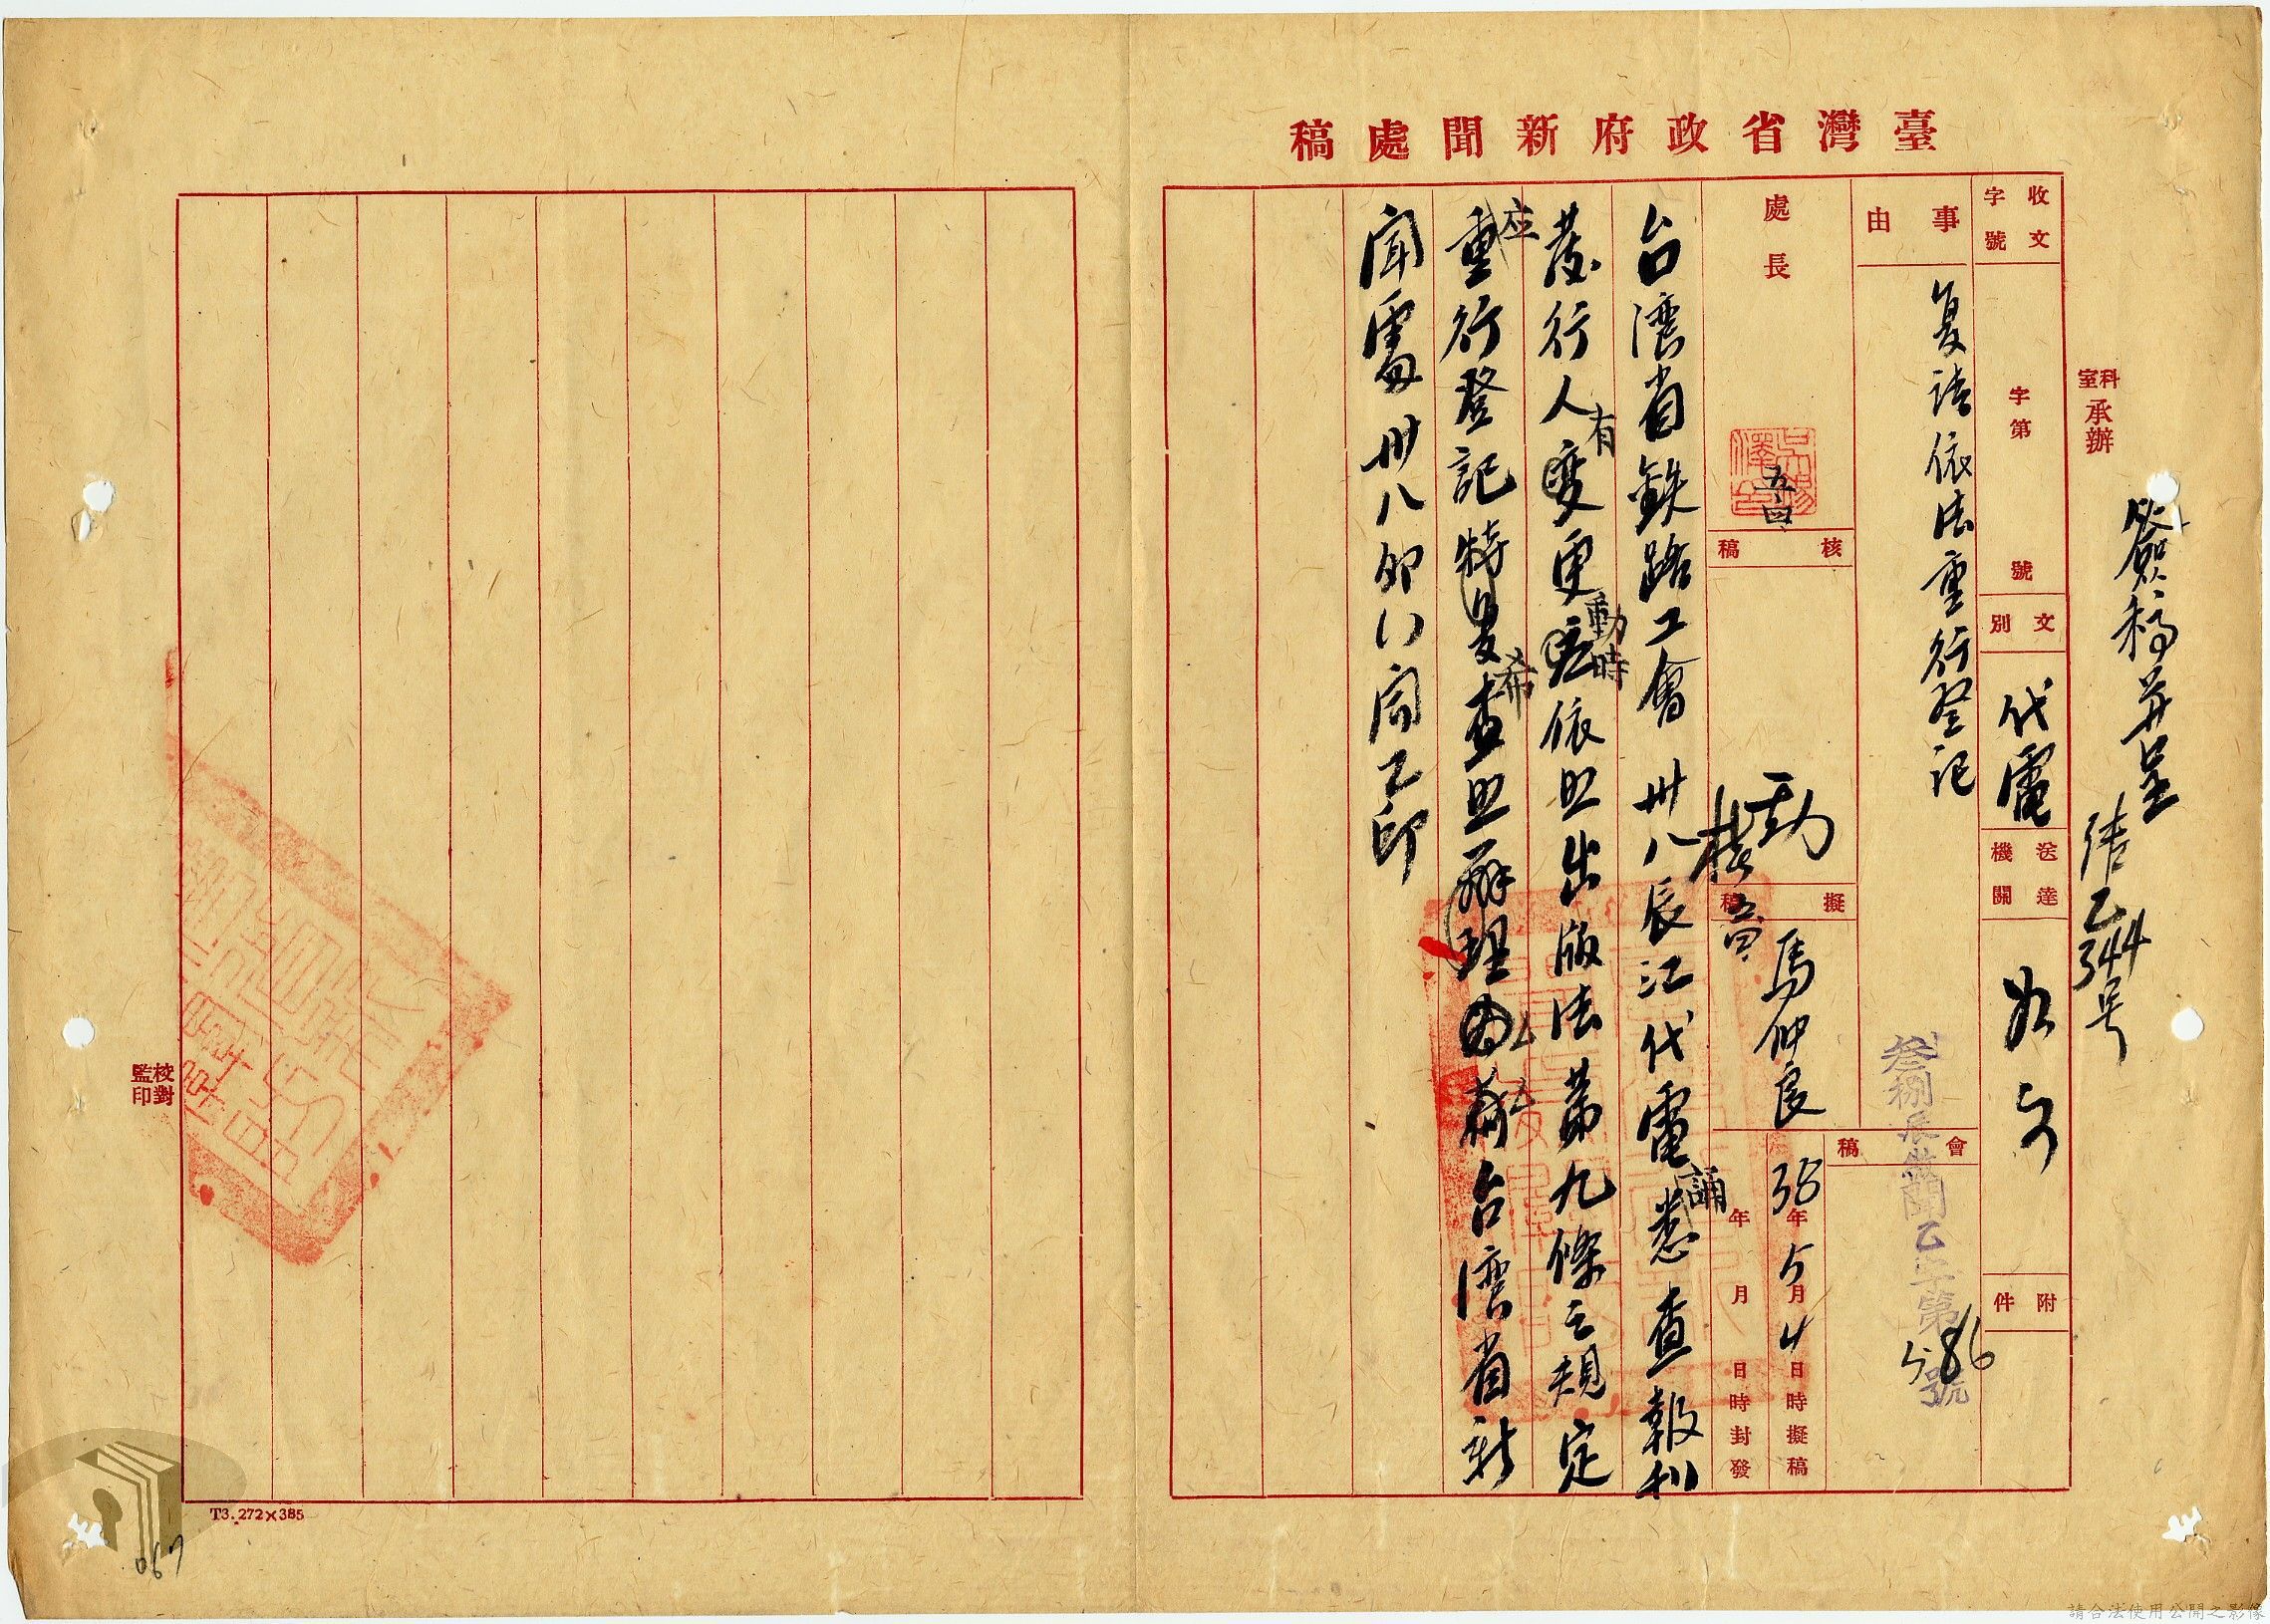 臺灣省政府新聞處稿
簽稿并呈
科室承辦
收文字號
字第 號
文別
代電
送達機關
如文
附件
事由
复請依法重行登記
會稿
叁捌辰 聞乙字第586號
處長
五、四、
核稿
五、四、
擬稿
馬仲良
38年5月4日時擬稿
年月日時封發
台湾省鉄路工會卅八辰江代電誦悉查報刊
發行人有變更動時依照出版法第九條之規定
应重行登記特复希查照辦理 台湾省新
聞處卅八卯 聞乙印
校對
監印
T3.272×385
067
請合法使用公開之影像